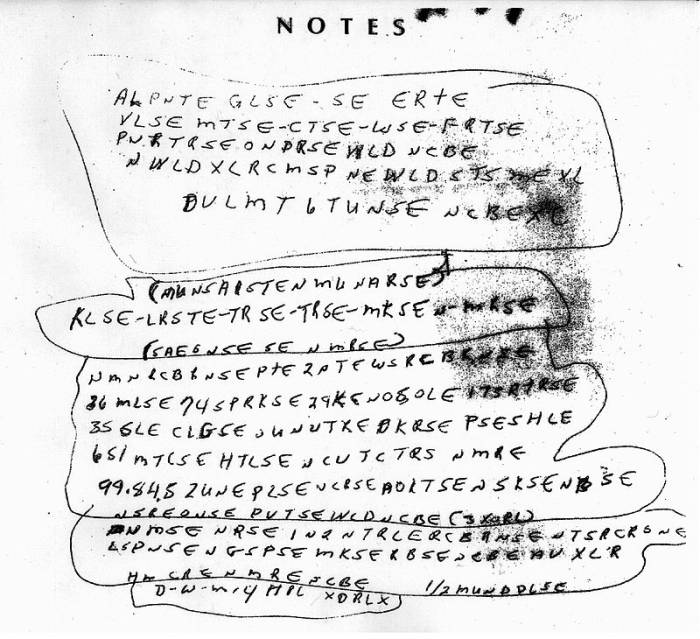 NOTES
ALPNTE GLSE-SE ERTE
VLSE MTSE-CTSE-WSE-FRTSE
PNRTRSEONDRSEWLD NCBE
NWLDXLRCMSP NEWLDSTS ME XL
DULMT6TUNSE NCBEXC
(MUNSAISTENMUNARSE)
KLSE-LRSTE-TRSE-TRSE-MKSEN-MRSE
(SAEGNSE SE NMRSE)
NMNRCBRNSEPTE2PTEWSRCBRNSE
36MLSE74SPRKSE29KENOSOLE173RTRSE
35GLE CLGSE UNUTREDKRSE PSESHLE
651MTCSE HTLSE NCUTCTRS NMRE
99.84.52UNEPLSENCRSEAOLTSENSKSENBSE
NSREONSE PUTSEWLDNCBE (3XORL)
NMSE NRSE IN2NTRLERCBRNSE NTSRCRSNE
LSPNSENGSPSE MKSERBSE NCBE AUXLR
HM CRE NMRE NCBE 1/2MUNDDLSE
D-W-M-14 MPL XDRLX